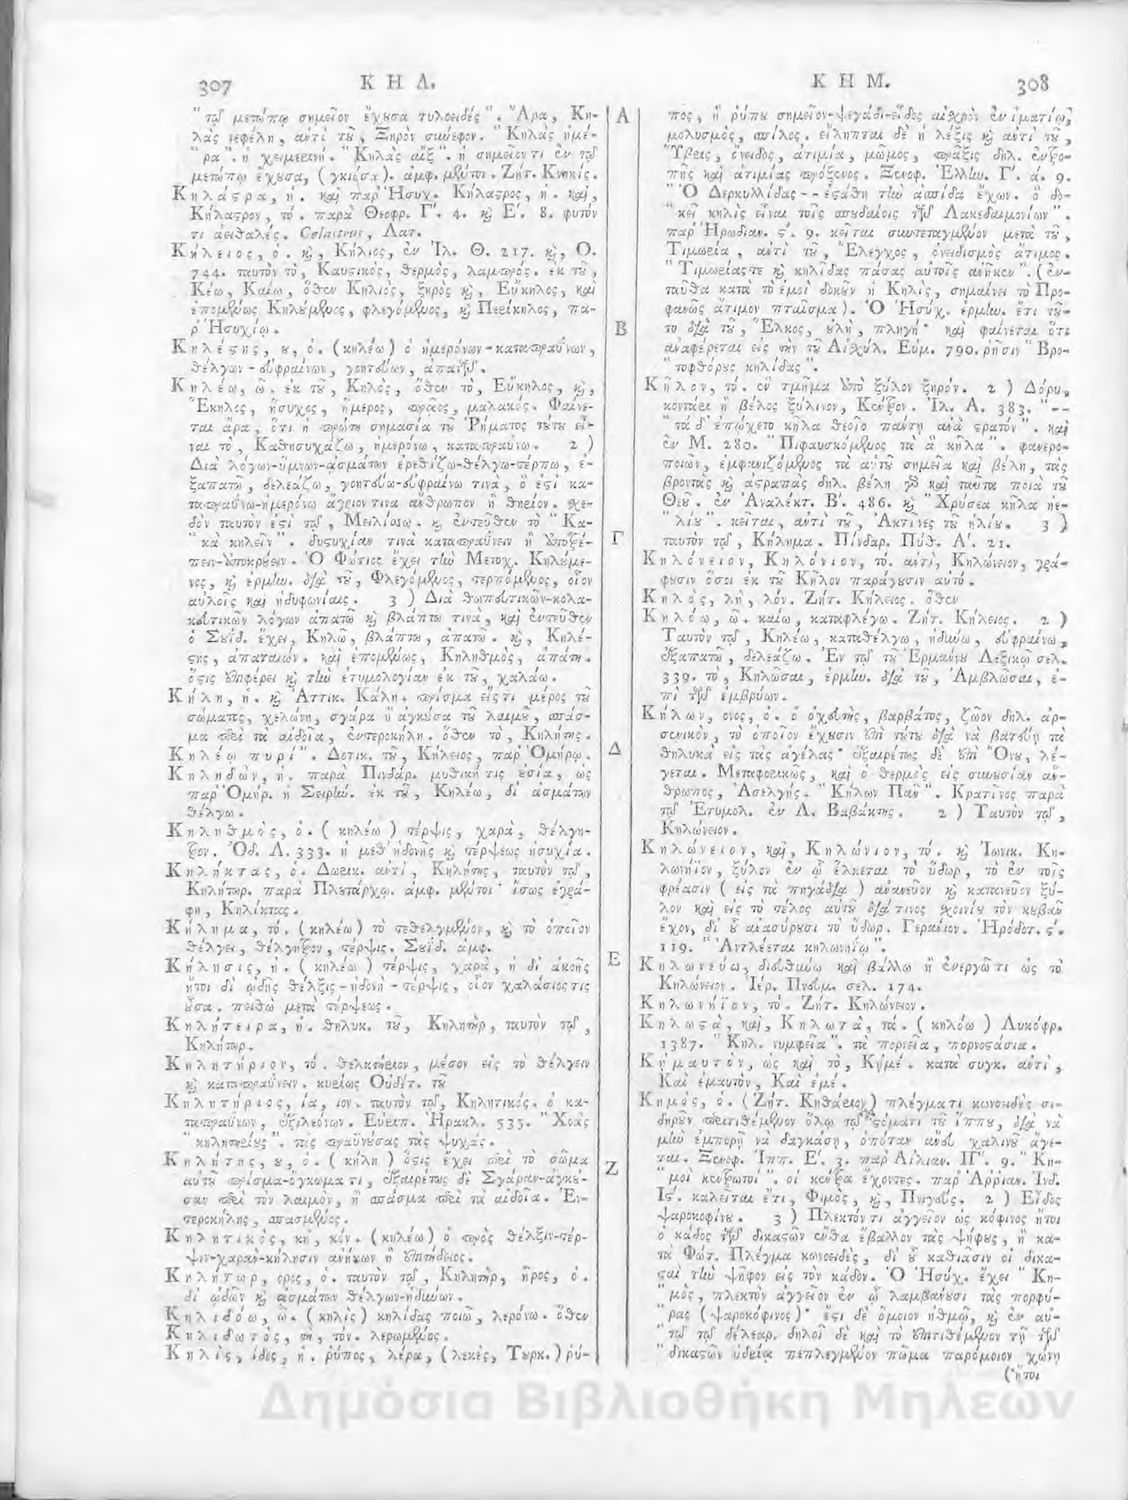 307 ΚΗΛ.
"τῷ μετώπῳ σημεῖον ἔχουσα τυλοειδές". Ἄρα, Κη-
λὰς νεφέλη, αὐτὶ τοῦ, Ξηρὸν συννεφον. "Κηλὰς ἡμέ-
"ρα". ἡ χειμερινή. "Κηλὰς αἲξ". ἡ σημεῖόν τι ἐν τῷ
μετώπῳ ἔχουσα, (γκιόσα). ἀμφ. μέμνηται. Ζήτ. Κνηκίς.
Κηλάστρα, ἡ. καὶ παρ' Ἡσυχ. Κήλαστρος, ἡ. καὶ,
Κήλαστρον, τό. παρὰ Θεοφρ. Γ'. 4. καὶ Ε'. 8. φυτόν
τι ἀειθαλές. Celastrus, Λατ.
Κήλειος, ὁ. καὶ, Κήλιος, ἐν Ἰλ. Θ. 217. καὶ, Ο.
744. ταυτὸν τὸ, Καυστικὸς, θερμὸς, λαμπρός. ἐκ τοῦ,
Κέω, Καίω, ὅθεν Κηλιός, ξηρὸς καὶ, Εὔκηλος, καὶ
ἑπομένως Κηλούμενος, φλεγόμενος, καὶ Περίκηλος, πα-
ρ' Ἡσυχίῳ.
Κηλέστης, ου, ὁ. (κηλέω) ὁ ἡμερόνων-καταπραΰνων,
θέλγων-εὐφραίνων, γοητεύων, ἀπατῶν.
Κηλέω, ῶ. ἐκ τοῦ, Κηλὸς, ὅθεν τὸ, Εὔκηλος, καὶ,
Ἔκηλος, ἥσυχος, ἥμερος, πρᾶος, μαλακός. Φαίνε-
ται ἄρα, ὅτι ἡ πρώτη σημασία τοῦ Ῥήματος τούτου εἶ-
ναι τὸ, Καθησυχάζω, ἡμερόνω, καταπραΰνω. 2)
Διὰ λόγων-ὕμνων-ἀσμάτων ἐρεθίζω-θέλγω-τέρπω, ἐ-
ξαπατῶ, δελεάζω, γοητεύω-εὐφραίνω τινὰ, ὅ ἐστι κα-
ταπραΰνω-ἡμερόνω ἄγριον τινα ἄνθρωπον ἢ θηρίον. σχε-
δὸν ταυτόν ἐστι τῷ, Μειλίσσω. καὶ ἐντεῦθεν τὸ "Κα-
"κὰ κηλεῖν". δυστυχίαν τινὰ καταπραΰνειν ἢ ὑποτρέ-
πειν-ὑποκρούειν. Ὁ Φώτιος ἔχει τὴν Μετοχ. Κηλούμε-
νος, καὶ ἑρμην. διὰ τοῦ, Φλεγόμενος, τερπόμενος, οἷον
αὐλοῖς καὶ ἡδυφωνίαις. 3) Διὰ θωπευτικῶν-κολα-
κευτικῶν λόγων ἀπατῶ καὶ βλάπτω τινὰ, καὶ ἐντεῦθεν
ὁ Σουΐδ. ἔχει, Κηλῶ, βλάπτω, ἀπατῶ. καὶ, Κηλέ-
στης, ἀπατεών. καὶ ἑπομένως, Κηληθμὸς, ἀπάτη.
ὅστις ἐπιφέρει καὶ τὴν ἐτυμολογίαν ἐκ τοῦ, χαλάω.
Κήλη, ἡ. καὶ Ἀττικ. Κάλη. πρίσμα εἴς τι μέρος τοῦ
σώματος, χελώνη, σγάρα ἢ ἀγκοῦσα τοῦ λαιμοῦ, σπάσ-
μα περὶ τὰ αἰδοῖα, ἐντεροκήλη. ὅθεν τὸ, Κηλήτης.
Κηλέῳ πυρί". Δοτικ. τοῦ, Κήλειος, παρ' Ὁμήρῳ.
Κηληδὼν, ἡ. παρὰ Πινδάρ. μυθική τις οὐσία, ὡς
παρ' Ὁμήρ. ἡ Σειρήν. ἐκ τοῦ, Κηλέω, δι' ἀσμάτων
θέλγω.
Κηληθμὸς, ὁ. (κηλέω) τέρψις, χαρὰ, θέλγη-
τρον. Ὀδ. Λ. 333. ἡ μεθ' ἡδονῆς καὶ τέρψεως ἡσυχία.
Κηλήκτας, ὁ. Δωρικ. αὐτὶ, Κηλήτης, ταυτὸν τῷ,
Κηλήτωρ. παρὰ Πλουτάρχῳ. ἀμφ. μέντοι· ἴσως ἐγρά-
φη, Κηλίκτας.
Κήλημα, τό. (κηλέω) τὸ τεθελγμένον, καὶ τὸ ὁποῖον
θέλγει, θέλγητρον, τέρψις. Σουΐδ. ἀμφ.
Κήλησις, ἡ. (κηλέω) τέρψις, χαρὰ, ἡ δι' ἀκοῆς
ἤτοι δι' ᾠδῆς θέλξις-ἡδονὴ-τέρψις, οἷον χαλάσιός τις
οὖσα. πειθὼ μετὰ τέρψεως.
Κηλήτειρα, ἡ. θηλυκ. τοῦ, Κηλητὴρ, ταυτὸν τῷ,
Κηλήτωρ.
Κηλητήριον, τό. θελκτήριον, μέσον εἰς τὸ θέλγειν
καὶ καταπραΰνειν. κυρίως Οὐδέτ. τοῦ
Κηλητήριος, ία, ιον. ταυτὸν τῷ, Κηλητικός. ὁ κα-
ταπραΰνων, ἐξιλεόνων. Εὐριπ. Ἡρακλ. 535. "Χοὰς
"κηλητηρίους". τὰς πραϋνούσας τὰς ψυχάς.
Κηλήτης, ου, ὁ. (κήλη) ὅστις ἔχει περὶ τὸ σῶμα
αὑτοῦ πρίσμα-όγκωμά τι, ἐξαιρέτως δὲ Σγάραν-ἀγκοῦ-
σαν περὶ τὸν λαιμὸν, ἢ σπάσμα περὶ τὰ αἰδοῖα. Ἐν-
τεροκήλης, σπασμένος.
Κηλητικὸς, κὴ, κόν. (κηλέω) ὁ πρὸς θέλξιν-τέρ-
ψιν-χαρὰν-κήλησιν ἀνήκων ἢ ἐπιτήδειος.
Κηλήτωρ, ορος, ὁ. ταυτὸν τῷ, Κηλητὴρ, ῆρος, ὁ.
δι' ᾠδῶν καὶ ἀσμάτων θέλγων-ἡδύνων.
Κηλιδόω, ῶ. (κηλὶς) κηλίδας ποιῶ, λερόνω. ὅθεν
Κηλιδωτὸς, τὴ, τόν. λερωμένος.
Κηλὶς, ίδος, ἡ. ῥύπος, λέρα, (λεκὲς, Τουρκ.) ῥύ-
Α
Β
Γ
Δ
Ε
Ζ
ΚΗΜ. 308
πος, ἢ ῥύπου σημεῖον-ψεγάδι-εἶδος αἰσχρὸν ἐν ἱματίῳ,
μολυσμὸς, σπίλος. εἴληπται δὲ ἡ λέξις καὶ αὐτὶ τοῦ,
Ὕβρις, ὄνειδος, ἀτιμία, μῶμος, πρᾶξις δηλ. ἐντρο-
πῆς καὶ ἀτιμίας πρόξενος. Ξενοφ. Ἑλλην. Γ'. ά. 9.
"Ὁ Δερκυλλίδας -- ἐστάθη τὴν ἀσπίδα ἔχων. ὃ δο-
"κεῖ κηλὶς εἶναι τοῖς σπουδαίοις τῶν Λακεδαιμονίων".
παρ' Ἡρωδιαν. ς'. 9. κεῖται συντεταγμένον μετὰ τοῦ,
Τιμωρία, αὐτὶ τοῦ, Ἔλεγχος, ὀνειδισμὸς ἄτιμος.
"Τιμωρίας τε καὶ κηλίδας πάσας αὐτοῖς ἀνῆκεν". (ἐν-
ταῦθα κατὰ τὸ ἐμοὶ δοκοῦν ἡ Κηλὶς, σημαίνει τὸ Προ-
φανῶς ἄτιμον πταῖσμα). Ὁ Ἡσύχ. ἑρμην. ἔτι τοῦ-
το διὰ τοῦ, Ἕλκος, οὐλὴ, πληγή· καὶ φαίνεται ὅτι
ἀναφέρεται εἰς τὴν τοῦ Αἰσχύλ. Εὐμ. 790. ῥῆσιν "Βρο-
"τοφθόρους κηλίδας".
Κῆλον, τό. ἓν τμῆμα ἀπὸ ξύλον ξηρόν. 2) Δόρυ,
κοντάρι ἢ βέλος ξύλινον, Κοῦφον. Ἰλ. Α. 383. "--
"τὰ δ' ἐπῴχετο κῆλα θεοῖο πάντῃ ἀνὰ στρατόν". καὶ
ἐν Μ. 280. "Πιφαυσκόμενος τὰ ἃ κῆλα". φανερο-
ποιῶν, ἐμφανιζόμενος τὰ αὑτοῦ σημεῖα καὶ βέλη, τὰς
βροντὰς καὶ ἀστραπὰς δηλ. βέλη γὰρ καὶ ταῦτα ποιὰ τοῦ
Θεοῦ. ἐν Ἀναλέκτ. Β'. 486. καὶ "Χρύσεα κῆλα ἠε-
"λίου". κεῖται, αὐτὶ τοῦ, Ἀκτῖνες τοῦ ἡλίου. 3)
ταυτὸν τῷ, Κήλημα. Πίνδαρ. Πύθ. Α'. 21.
Κηλόνειον, Κηλόνιον, τό. αὐτὶ, Κηλώνειον, γρά-
φουσιν ὅσοι ἐκ τοῦ Κῆλον παράγουσιν αὐτό.
Κηλὸς, λὴ, λόν. Ζήτ. Κήλειος. ὅθεν
Κηλόω, ῶ. καίω, καταφλέγω. Ζήτ. Κήλειος. 2)
Ταυτὸν τῷ, Κηλέω, καταθέλγω, ἡδύνω, εὐφραίνω,
ἐξαπατῶ, δελεάζω. Ἐν τῷ τοῦ Ἑρμάννου Λεξικῷ σελ.
339. τὸ, Κηλῶσαι, ἑρμην. διὰ τοῦ, Ἀμβλῶσαι, ἐ-
πὶ τῶν ἐμβρύων.
Κήλων, ονος, ὁ. ὁ ὀχευτὴς, βαρβάτος, ζῶον δηλ. ἀρ-
σενικὸν, τὸ ὁποῖον ἔχουσιν ἐπὶ τούτου διὰ νὰ βατεύῃ τὰ
θηλυκὰ εἰς τὰς ἀγέλας· ἐξαιρέτως δὲ ἐπὶ Ὄνου, λέ-
γεται. Μεταφορικῶς, καὶ ὁ θερμὸς εἰς συνουσίαν ἄν-
θρωπος, Ἀσελγής. "Κήλων Πάν". Κρατῖνος παρὰ
τῷ Ἐτυμολ. ἐν Λ. Βαβάκτης. 2) Ταυτὸν τῷ,
Κηλώνειον.
Κηλώνειον, καὶ, Κηλώνιον, τό. καὶ Ἰωνικ. Κη-
λωνήϊον, ξύλον ἐν ᾧ ἕλκεται τὸ ὕδωρ, τὸ ἐν τοῖς
φρέασιν (εἰς τὰ πηγάδια) ἀνανεῦον καὶ κατανεῦον ξύ-
λον καὶ εἰς τὸ τέλος αὑτοῦ διά τινος σχοινίου τὸν κουβᾶν
ἔχον, δι' οὗ ἀνασύρουσι τὸ ὕδωρ. Γεράνιον. Ἡρόδοτ. ς'.
119. "Ἀντλέεται κηλωνηΐῳ".
Κηλωνεύω, διευθύνω καὶ βάλλω ἢ ἐνεργῶ τι ὡς τὸ
Κηλώνειον. Ἱέρ. Πνευμ. σελ. 174.
Κηλωνήϊον, τό. Ζήτ. Κηλώνειον.
Κηλωστὰ, καὶ, Κηλωτὰ, τά. (κηλόω) Λυκόφρ.
1387. "Κηλ. νυμφεῖα". τὰ πορνεῖα, πορνοστάσια.
Κἠμαυτὸν, ὡς καὶ τὸ, Κἠμέ. κατὰ συγκ. αὐτὶ,
Καὶ ἐμαυτὸν, Καὶ ἐμέ.
Κημὸς, ὁ. (Ζήτ. Κηθάριον) πλέγμα τι κωνοειδὲς σι-
δηροῦν περιτιθέμενον ὅλῳ τῷ στόματι τοῦ ἵππου, διὰ νὰ
μὴν ἐμπορῇ νὰ δαγκάσῃ, ὁπόταν ἄνευ χαλινοῦ ἄγε-
ται. Ξενοφ. Ἱππ. Ε'. 3. παρ' Αἰλιαν. ΙΓ'. 9. "Κη-
"μοὶ κεντρωτοί". οἱ κέντρα ἔχοντες. παρ' Ἀρριαν. Ἰνδ.
Ις'. καλεῖται ἔτι, Φιμὸς, καὶ, Πνιγεύς. 2) Εἶδος
ψαροκοφίνου. 3) Πλεκτόν τι ἀγγεῖον ὡς κόφινος ἤτοι
ὁ κάδος τῶν δικαστῶν ἔνθα ἔβαλλον τὰς ψήφους, ἢ κα-
τὰ Φώτ. Πλέγμα κωνοειδὲς, δι' οὗ καθιᾶσιν οἱ δικα-
σταὶ τὴν ψῆφον εἰς τὸν κάδον. Ὁ Ἡσύχ. ἔχει "Κη-
"μὸς, πλεκτὸν ἀγγεῖον ἐν ᾧ λαμβάνουσι τὰς πορφύ-
"ρας (ψαροκόφινος)· ἔστι δὲ ὅμοιον ἠθμῷ, καὶ ἐν αὐ-
"τῷ τῷ δέλεαρ. δηλοῖ δὲ καὶ τὸ ἐπιτιθέμενον τῇ τῶν
"δικαστῶν ὑδρίᾳ πεπλεγμένον πῶμα παρόμοιον χώνῃ
(ἤτοι
Δημόσια Βιβλιοθήκη Μηλεών